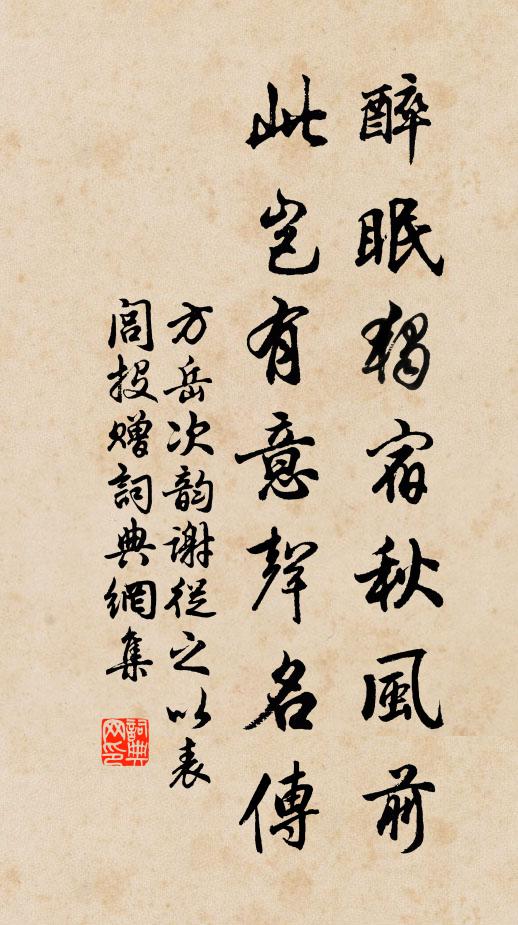 醉眠獨宿秋風前
此豈有意聲名傳
方岳次韵謝從之以表
閭投贈詞典網集
詞典网印